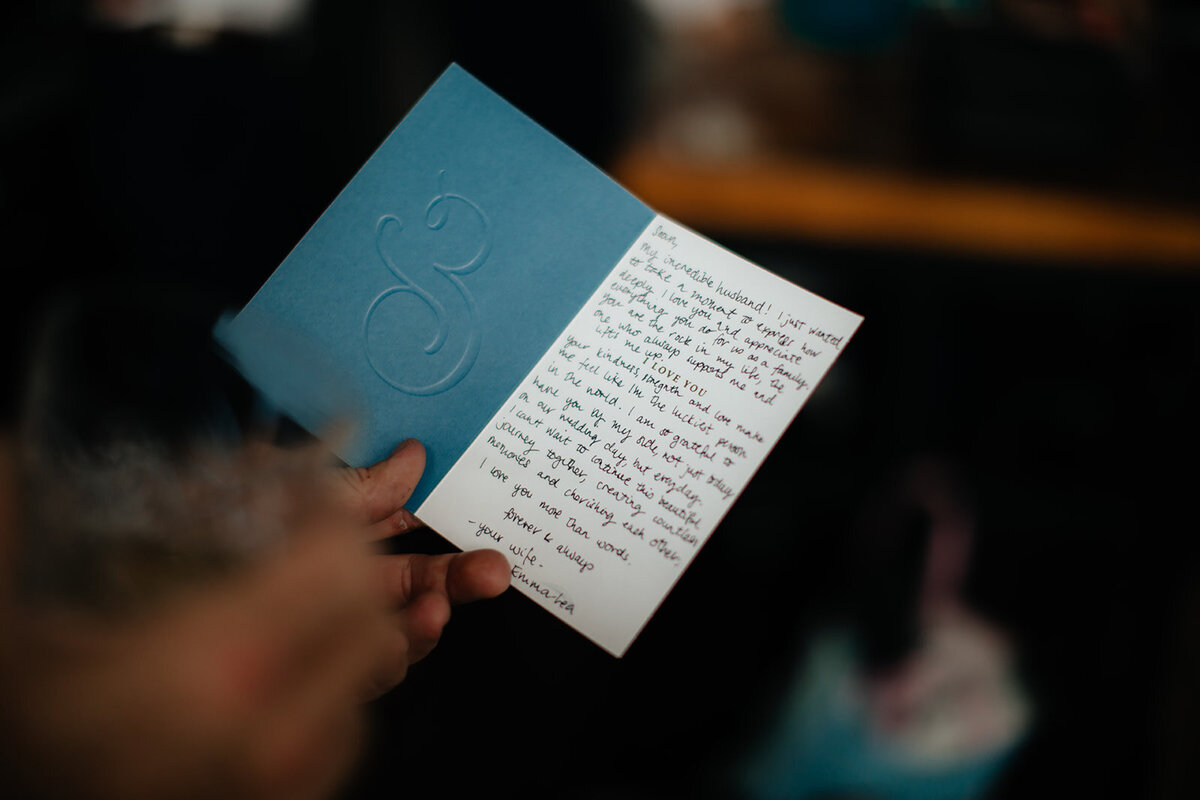 Sean,
my incredible husband! I just wanted
to take a moment to express how
deeply I love you and appreciate
everything you do for us as a family.
you are the rock in my life, the
one who always supports me and
lifts me up.
I LOVE YOU
your kindness, strength and love make
me feel like I'm the luckiest person
in the world. I am so grateful to
have you by my side, not just today
on our wedding day, but everyday.
I can't wait to continue this beautiful
journey together, creating countless
memories and cherishing each other.
I love you more than words.
forever & always
- your wife -
Emma-Lea